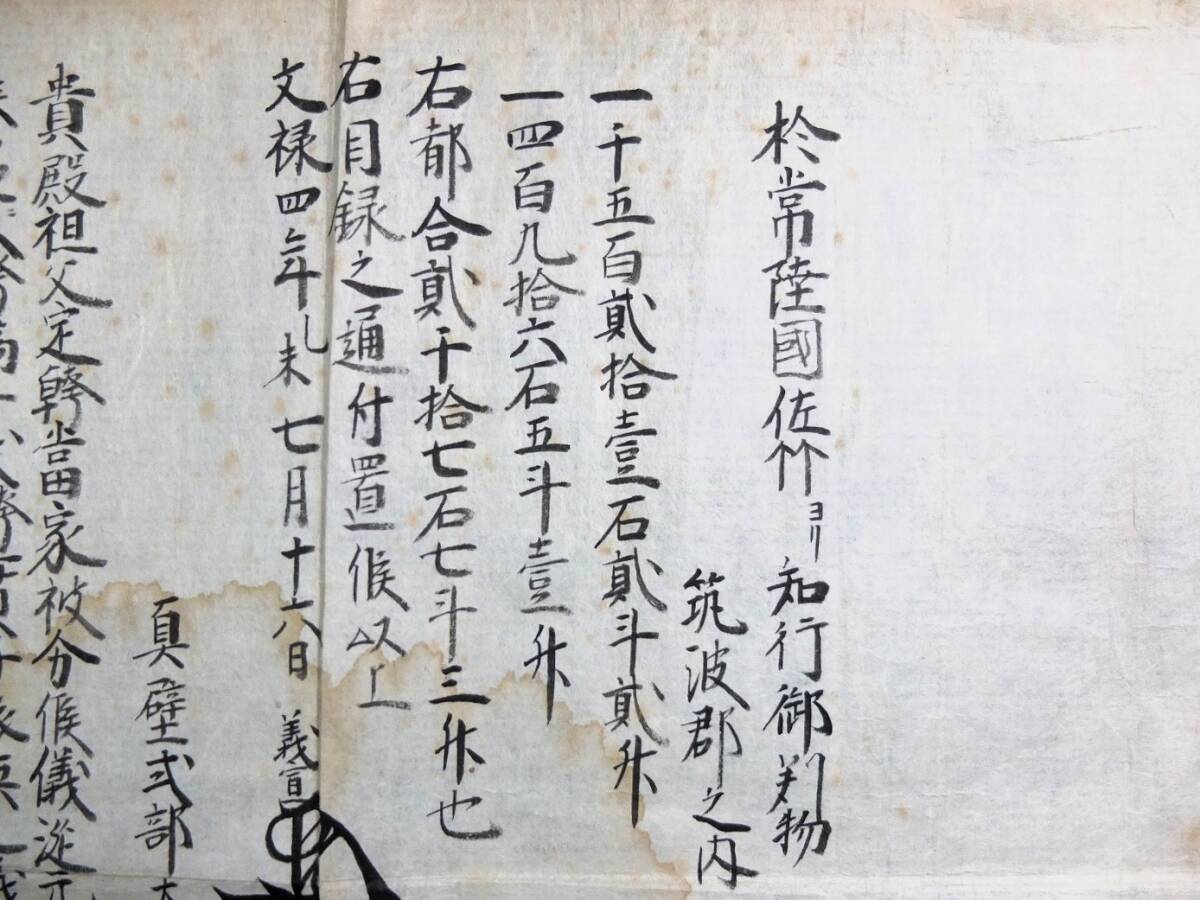 於常陸國佐竹ヨリ知行御判物
筑波郡之内
一千五百貳拾壹石貳斗貳升
一四百九拾六石五斗壹升
右都合貳千拾七石七斗三升也
右目録之通付置候以上
文禄四年乙未七月十六日 義宣
真壁式部太
貴殿祖父定幹当家被分候儀従元